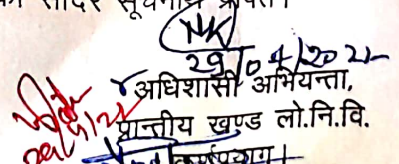 को सादर सूचनार्थ प्रेषित।
NK
29/04/2022
अधिशासी अभियन्ता,
प्रान्तीय खण्ड लो.नि.वि.
कर्णप्रयाग।